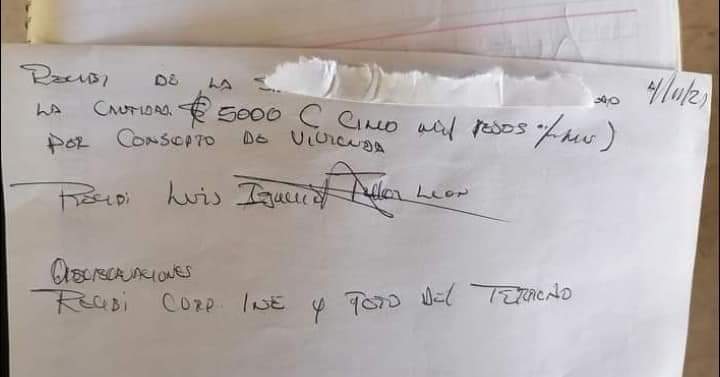 Recibi DE LA S
4/11/21
LA CANTIDAD $ 5000 ( CINCO mil PESOS
POR CONSEPTO DE VIVIENDA
Recibi Luis Ignacio Tellez LEON
OBSERVACIONES
Recibi CURP INE y FOTO DEL TERRENO